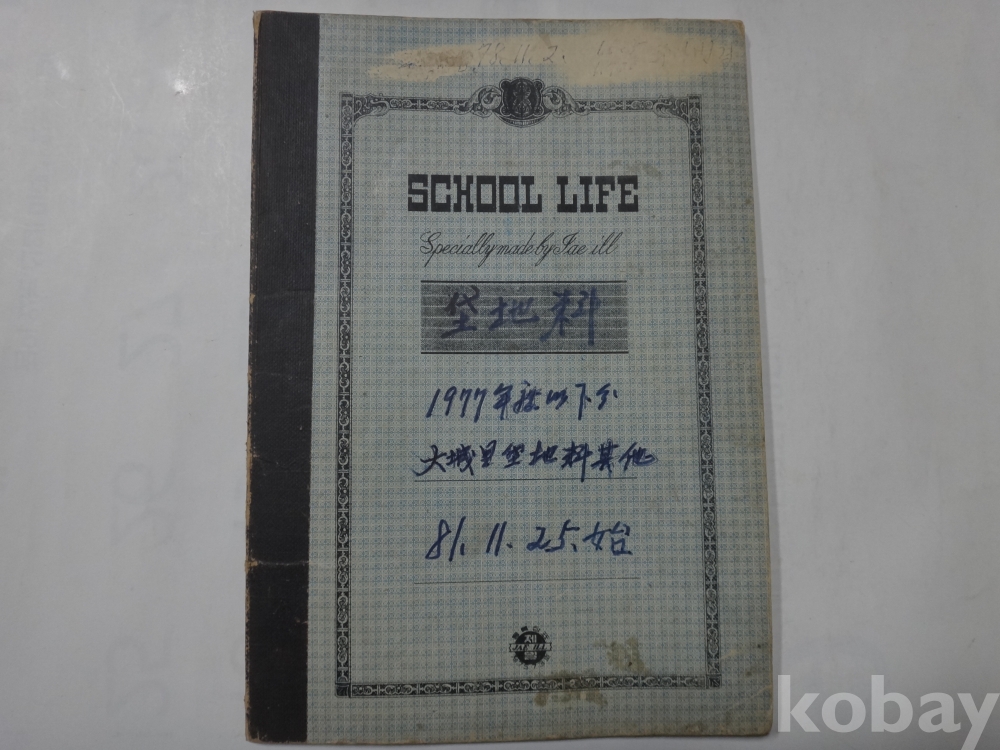 73.11.2.
SCHOOL LIFE
Specially made by Jae ill
垈地料
1977年度以下分
大城里垈地料其他
81. 11. 25. 始
제일
kobay